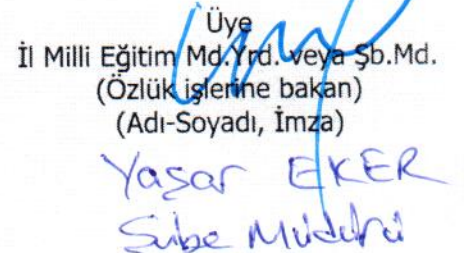 Üye
İl Milli Eğitim Md.Yrd. veya Şb.Md.
(Özlük işlerine bakan)
(Adı-Soyadı, İmza)
Yaşar EKER
Şube Müdürü